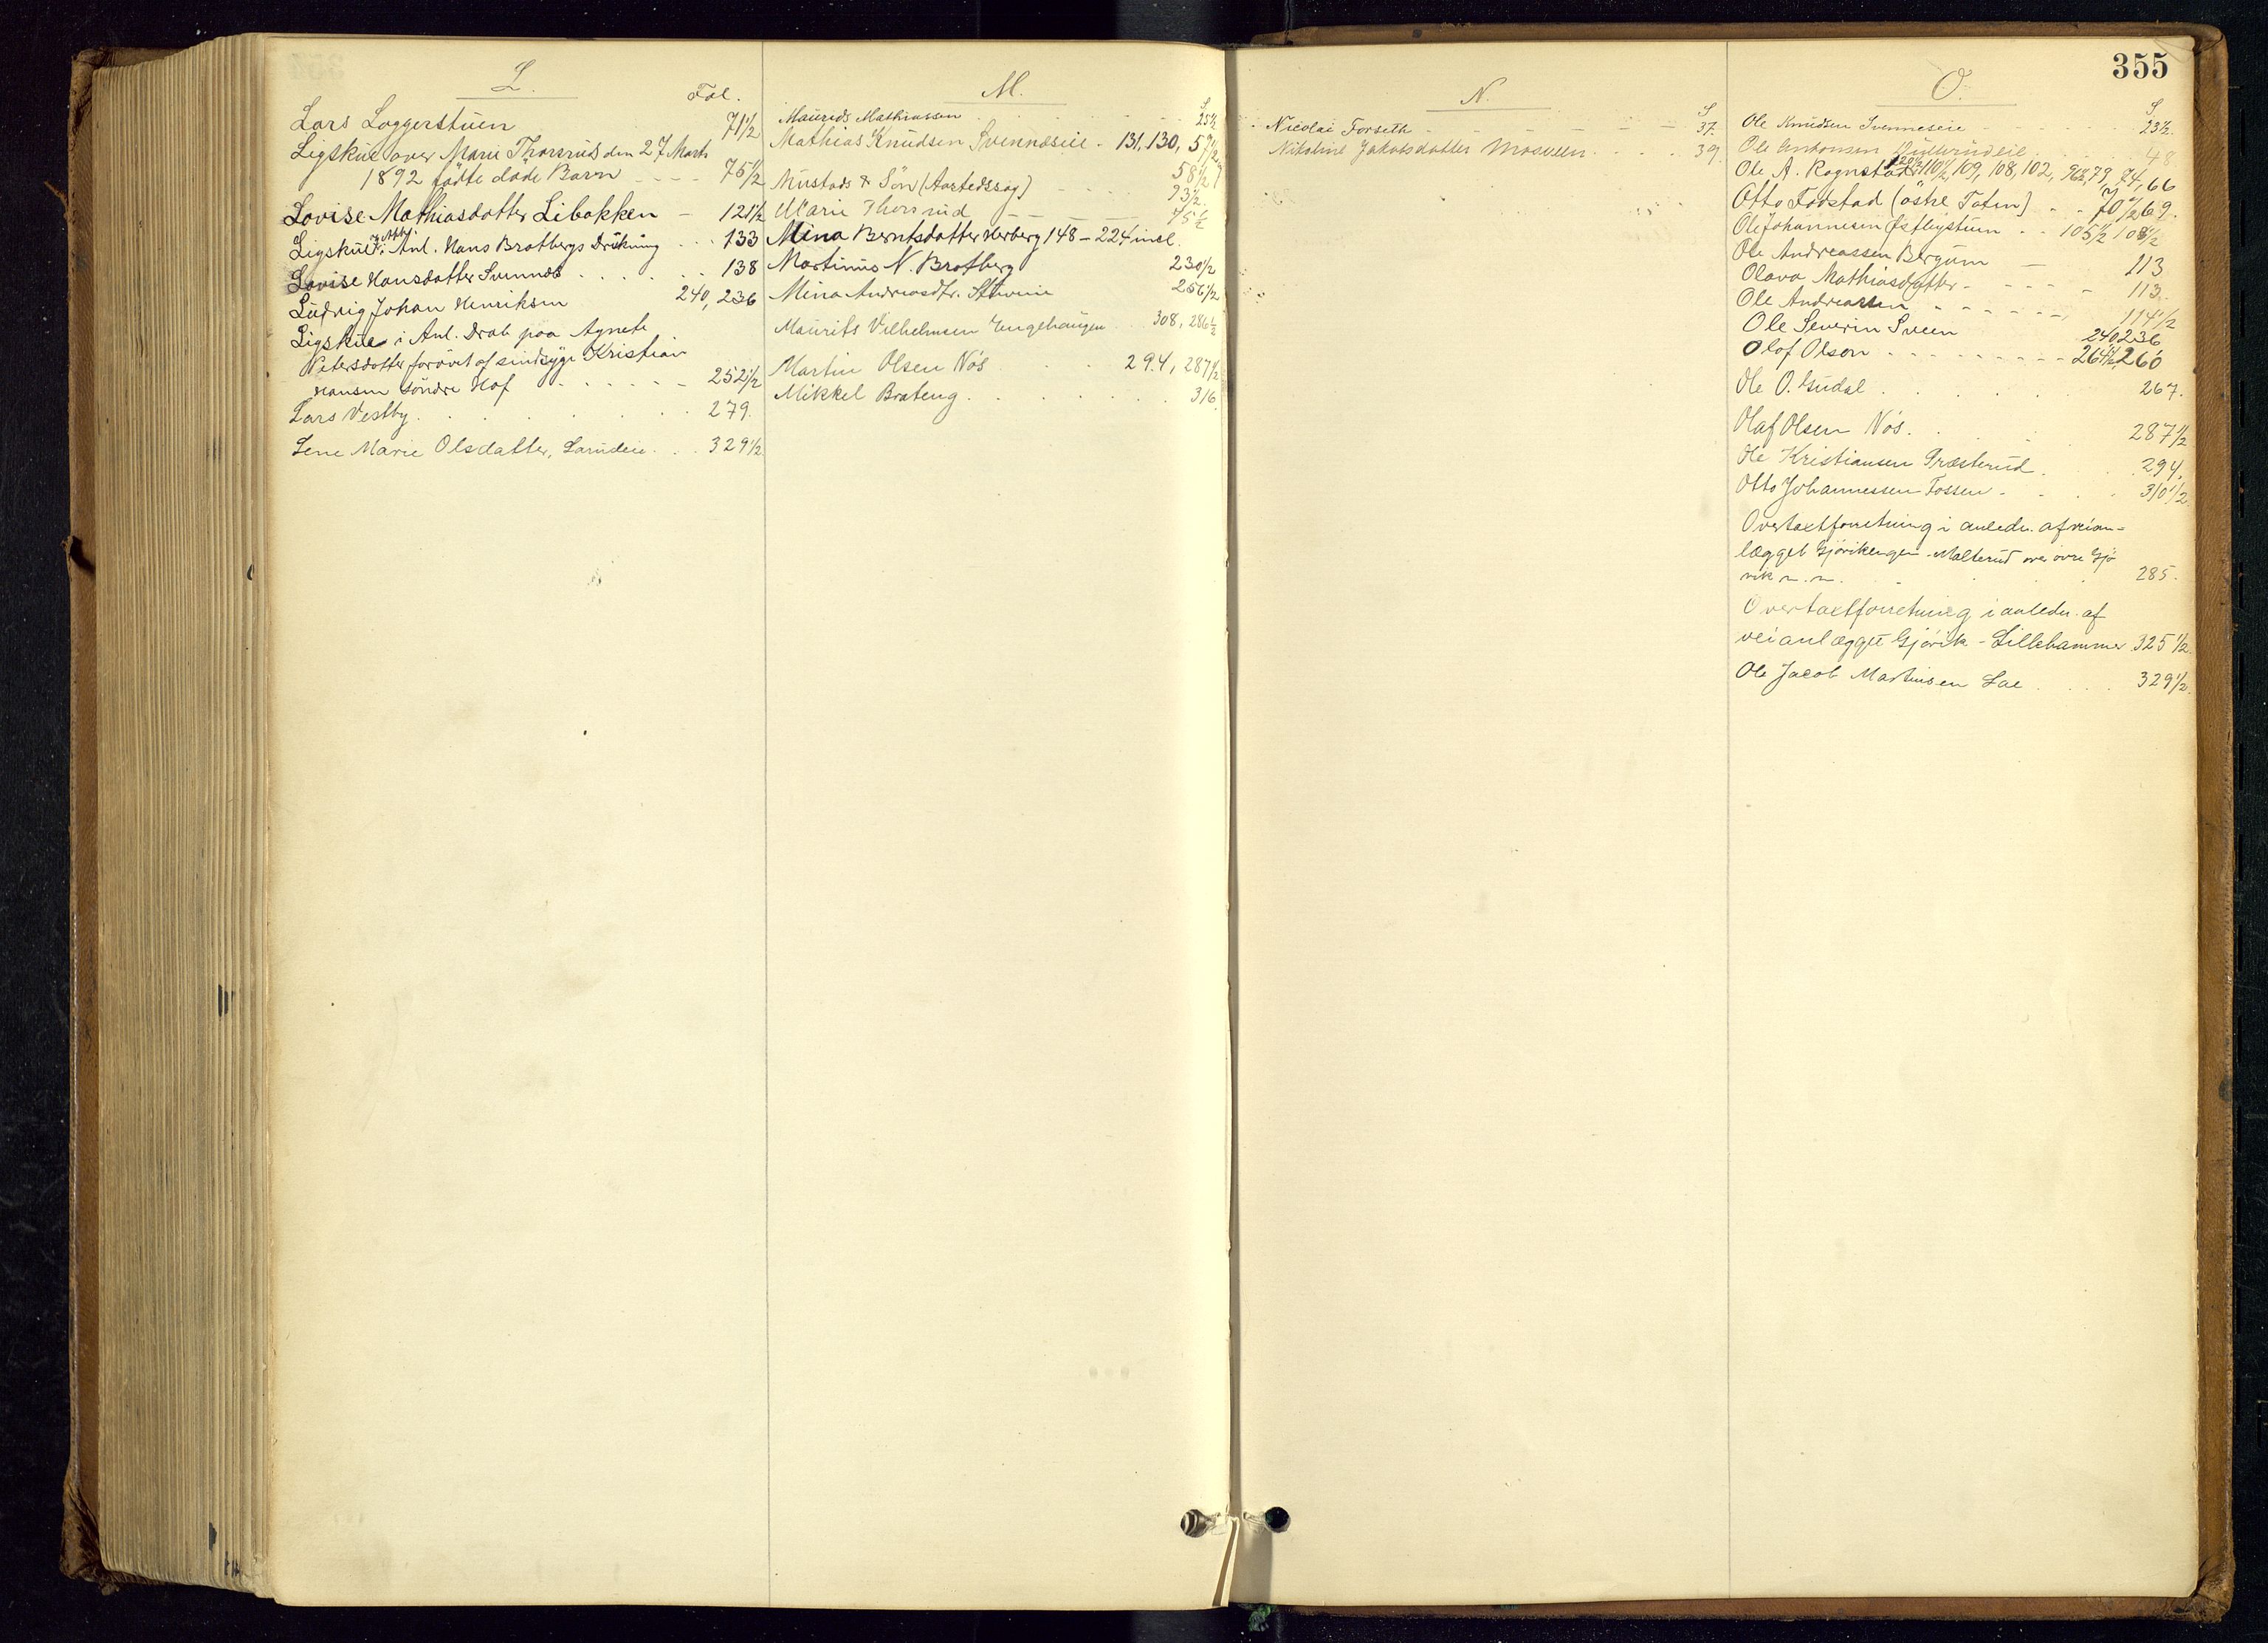 L.
Fol.
Lars Loggerstuen 71 1/2
Ligskue over Marie Thorsrud den 27 Marts
1892 fødte døde Barn - - - - 75 1/2
Lovise Mathiasdatter Libakken - 121 1/2
Ligskue i Anl. Hans Bratbergs Drukning . . . 133
Lovise Hansdatter Svennes . . . . . . 138
Ludvig Johan Henriksen 240, 236
Ligskue i Anl. Drab paa Agnete
Petersdatter forøvet af sindsyge Kristian
Hansen søndre Hof - - - - - - 252 1/2
Lars Vestby . . . . . . . . 279.
Lene Marie Olsdatter, . . . 329 1/2
M.
S
Maurids Mathiassen 25 1/2
Mathias Knudsen Svennæseie - 131, 130, 57 1/2
58 1/2
Mustads & Søn (Aastedssag) - - - 93 1/2
Marie Thorsrud - - - - - 75 1/2
Mina Berntsdatter Herberg 148 - 224 incl.
Martinus N. Bratberg 230 1/2
Mina Andreasdtr. 256 1/2
Maurits Vilhelmsen Engehaugen 308, 286 1/2
Martin Olsen Nøs . . 294, 287 1/2
Mikkel Brateng . . . . . . . 316.
N.
S
Nicolai Forseth - - - - - - - 37.
Nikoline Jakobsdatter Mosveen - - - - 39.
355
O.
S
Ole Knudsen Svenneseie - - - - - 23 1/2.
Ole Antonsen 48
Ole A. Rognstad 110 1/2, 109, 108, 102, 96 1/2, 79, 74, 66
Otto Fodstad (østre Toten) - - 70 1/2, 69.
Ole Johannesen . . 105 1/2 108 1/2
Ole Andreassen Bergum - 113
Olava Mathiasdatter - - - - - 113.
Ole Andreassen - - - - - - 114 1/2
Ole Severin Sveen 240, 236
Olaf Olsen . . . . . . . . . . 264 1/2, 260
Ole O. Gudal . . . . . . 267.
Olaf Olsen Nøs. . . . 287 1/2
Ole Kristiansen Præsterud . . . 294.
Otto Johannessen Fossen - . . . 310 1/2
Overtaxtforretning i anledn. af veian-
lægget Gjøvikengen - Malterud over øvre Gjø
vik m. m. . . . 285.
Overtaxtforretning i anledn. af
veianlægget Gjøvik - Lillehammer 325 1/2
Ole Jacob Martinsen . . . . 329 1/2.